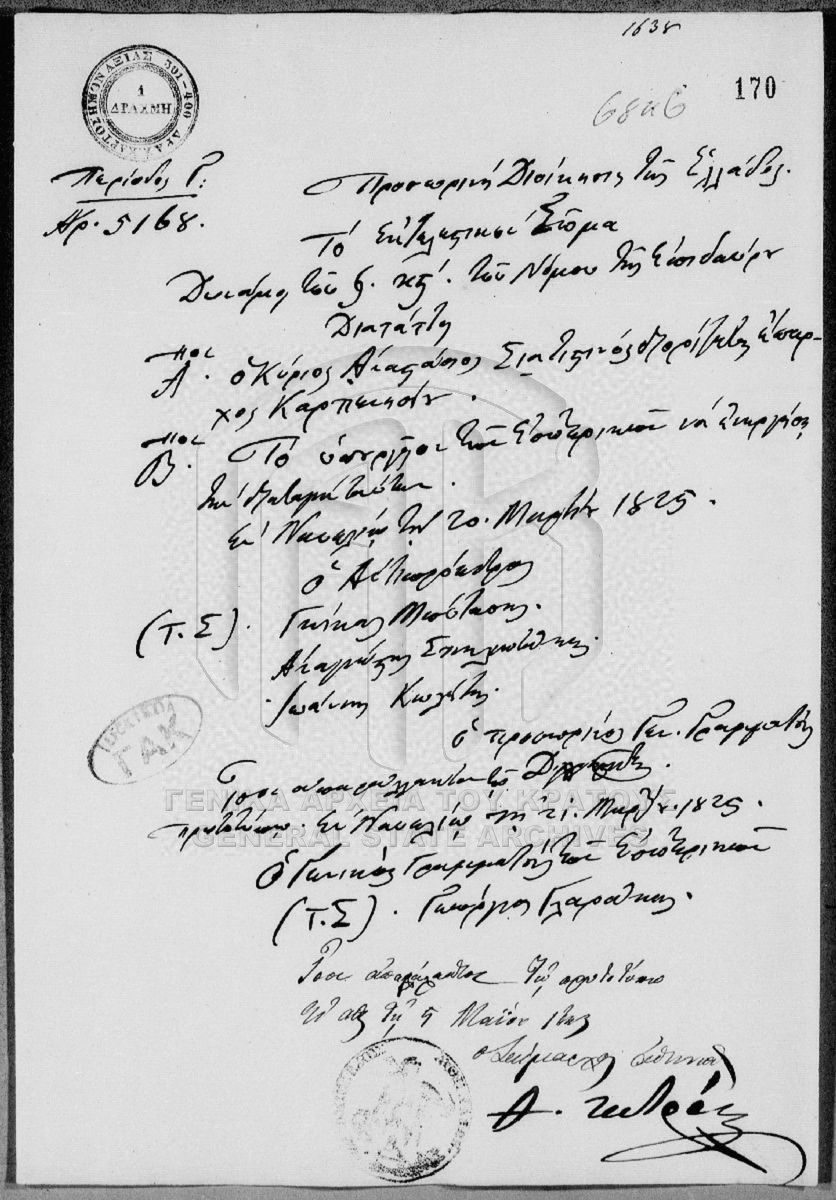 1638
170
ΧΑΡΤΟΣΗΜΟΝ ΑΞΙΑΣ 301-400 ΔΡΑΧ.
1
ΔΡΑΧΜΗ
Περίοδος Γ:
Ἀρ. 5168.
Προσωρινὴ Διοίκησις τῆς Ἑλλάδος.
Τὸ Ἐκτελεστικὸν Σῶμα
Δυνάμει τοῦ § κζ΄. τοῦ Νόμου τῆς Ἐπιδαύρου
Διατάττει
Α.ον ὁ Κύριος διορίζεται ἔπαρ-
χος Καρπενησίου.
Β.ον Τὸ ὑπουργεῖον τῶν Ἐσωτερικῶν νὰ ἐνεργήσῃ
τὴν διαταγὴν ταύτην.
Ἐν Ναυπλίῳ τῇ 20. Μαρτίου 1825.
ὁ Ἀντιπρόεδρος
(Τ.Σ). Γκίκας Μπότασης.
Ἀναγνώστης Σπηλιωτάκης.
Ἰωάννης Κωλέτης.
ὁ προσωρινὸς Γεν. Γραμματεὺς
Ἴσον ἀπαράλλακτον τῷ
πρωτοτύπῳ. Ἐν Ναυπλίῳ τῇ 21. Μαρτίου. 1825.
Ὁ Γενικὸς Γραμματεὺς τῶν Ἐσωτερικῶν
(Τ.Σ). Γεώργιος Γλαράκης.
Ἴσον ἀπαράλλακτον τῷ πρωτοτύπῳ
τῇ 5 Μαΐου
ὁ Δήμαρχος
ΓΑΚ
ΓΕΝΙΚΑ ΑΡΧΕΙΑ ΤΟΥ ΚΡΑΤΟΥΣ
GENERAL STATE ARCHIVES